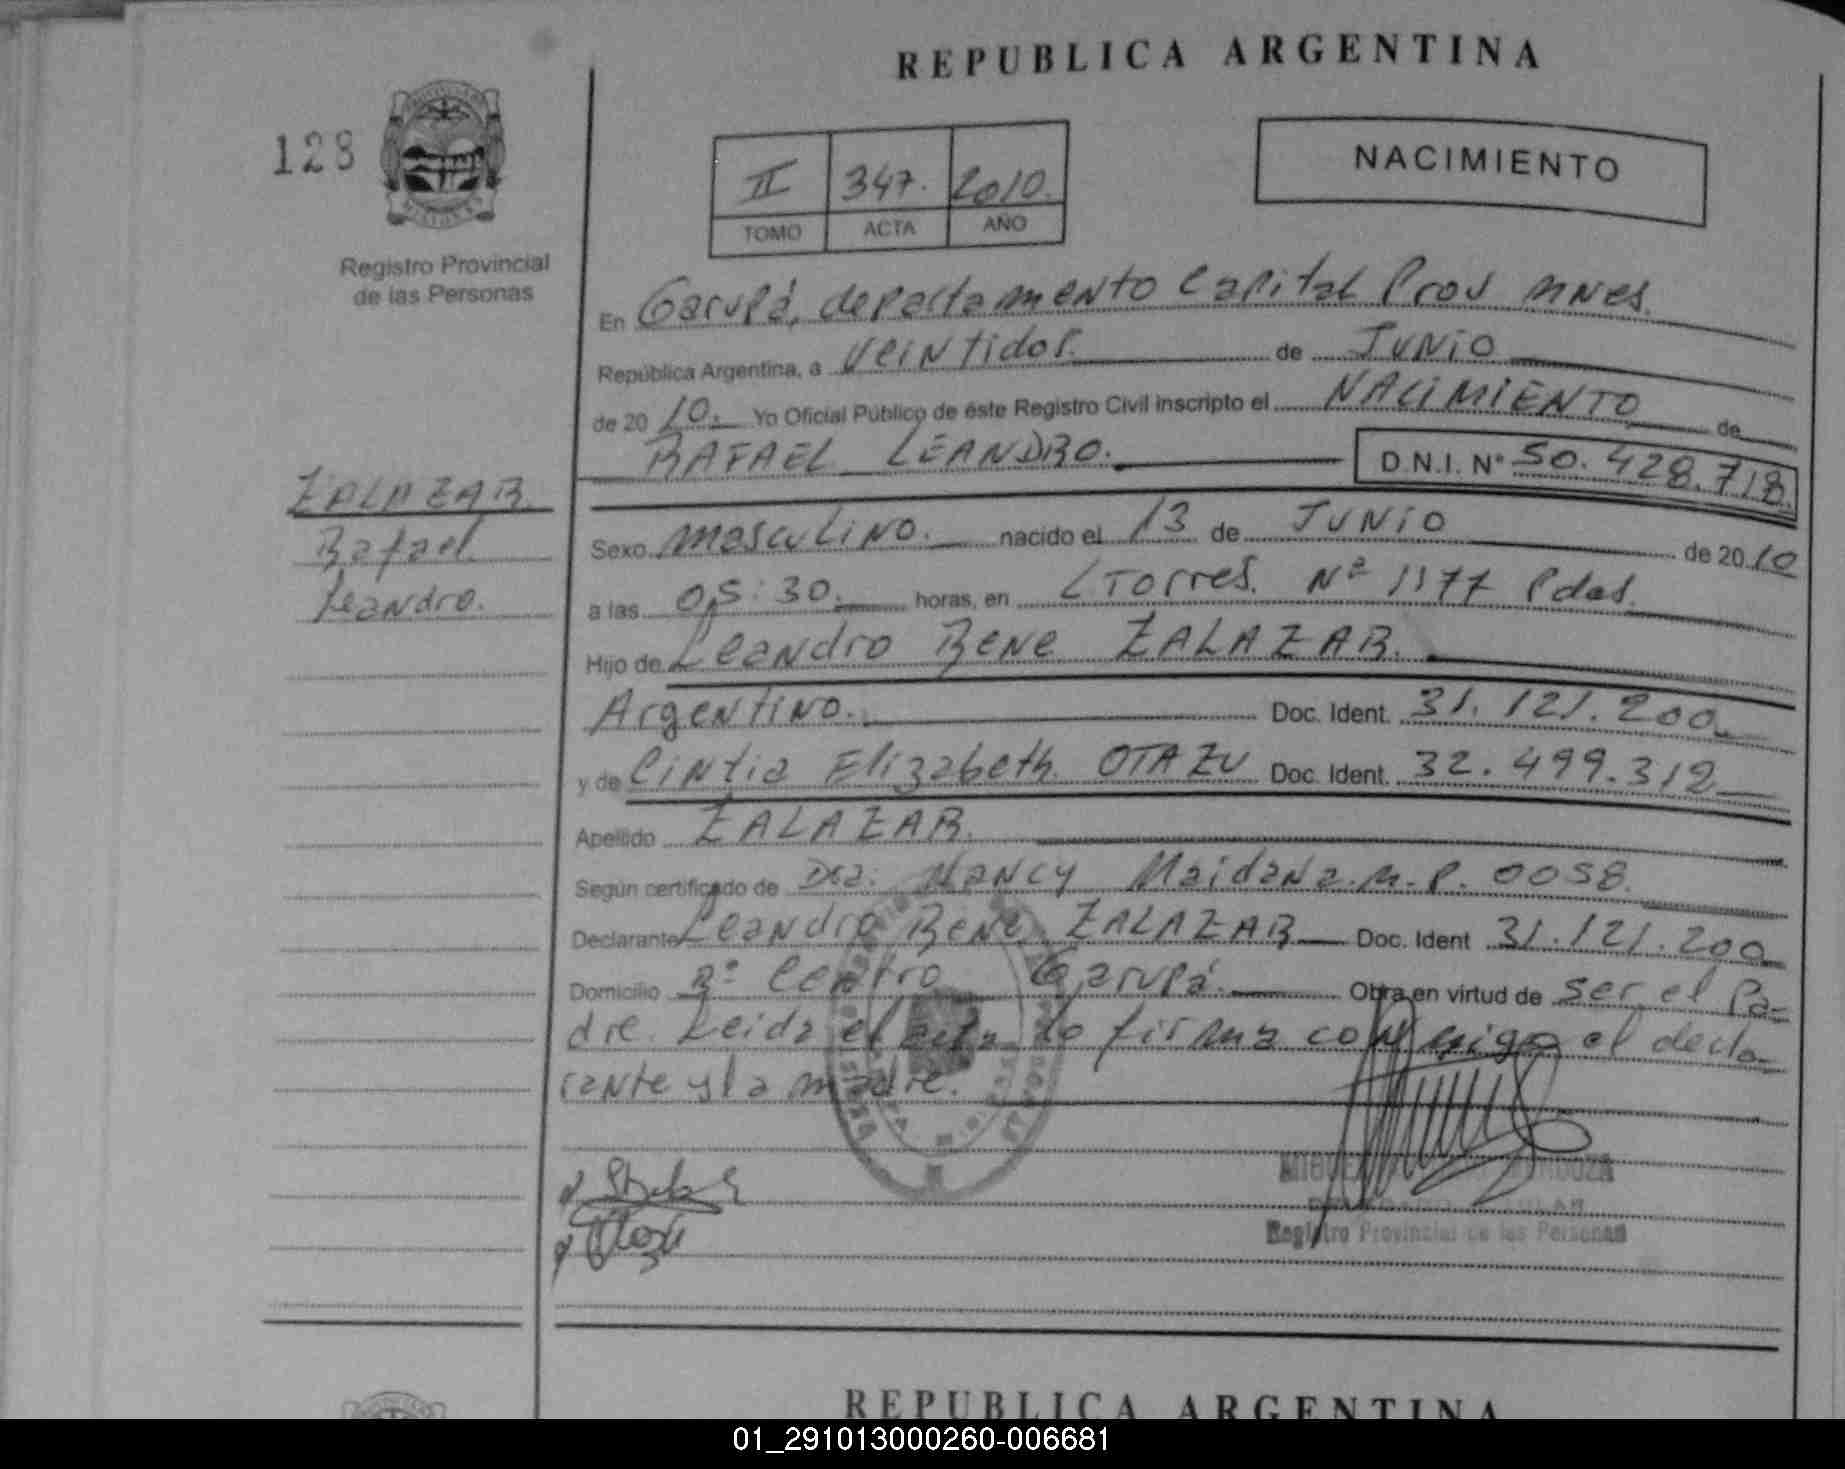 REPUBLICA ARGENTINA
128
NACIMIENTO
II 347. 2010.
TOMO ACTA AÑO
Registro Provincial
de las Personas
En Garupá, departamento Capital Prov Mnes.
República Argentina, a Veintidos. de Junio
de 2010. Yo Oficial Público de éste Registro Civil inscripto el NACIMIENTO de
RAFAEL LEANDRO. D.N.I. N° 50.428.718.
ZALAZAR.
Rafael
Leandro.
Sexo masculino. nacido el 13 de Junio de 2010
a las 05:30. horas, en L Torres. Nº 1177 Pdas.
Hijo de Leandro Rene ZALAZAR.
Argentino. Doc. Ident. 31.121.200
y de Cintia Elizabeth OTAZU Doc. Ident. 32.499.312
Apellido ZALAZAR.
Según certificado de Dra. Nancy Maidana. M.P. 0058.
Declarante Leandro Rene ZALAZAR Doc. Ident 31.121.200
Domicilio Bº Centro Garupá. Obra en virtud de ser el Pa-
dre. Leida el acta lo firma conmigo el decla-
rante y la madre.
Registro Provincial de las Personas
REPUBLICA ARGENTINA
01_291013000260-006681